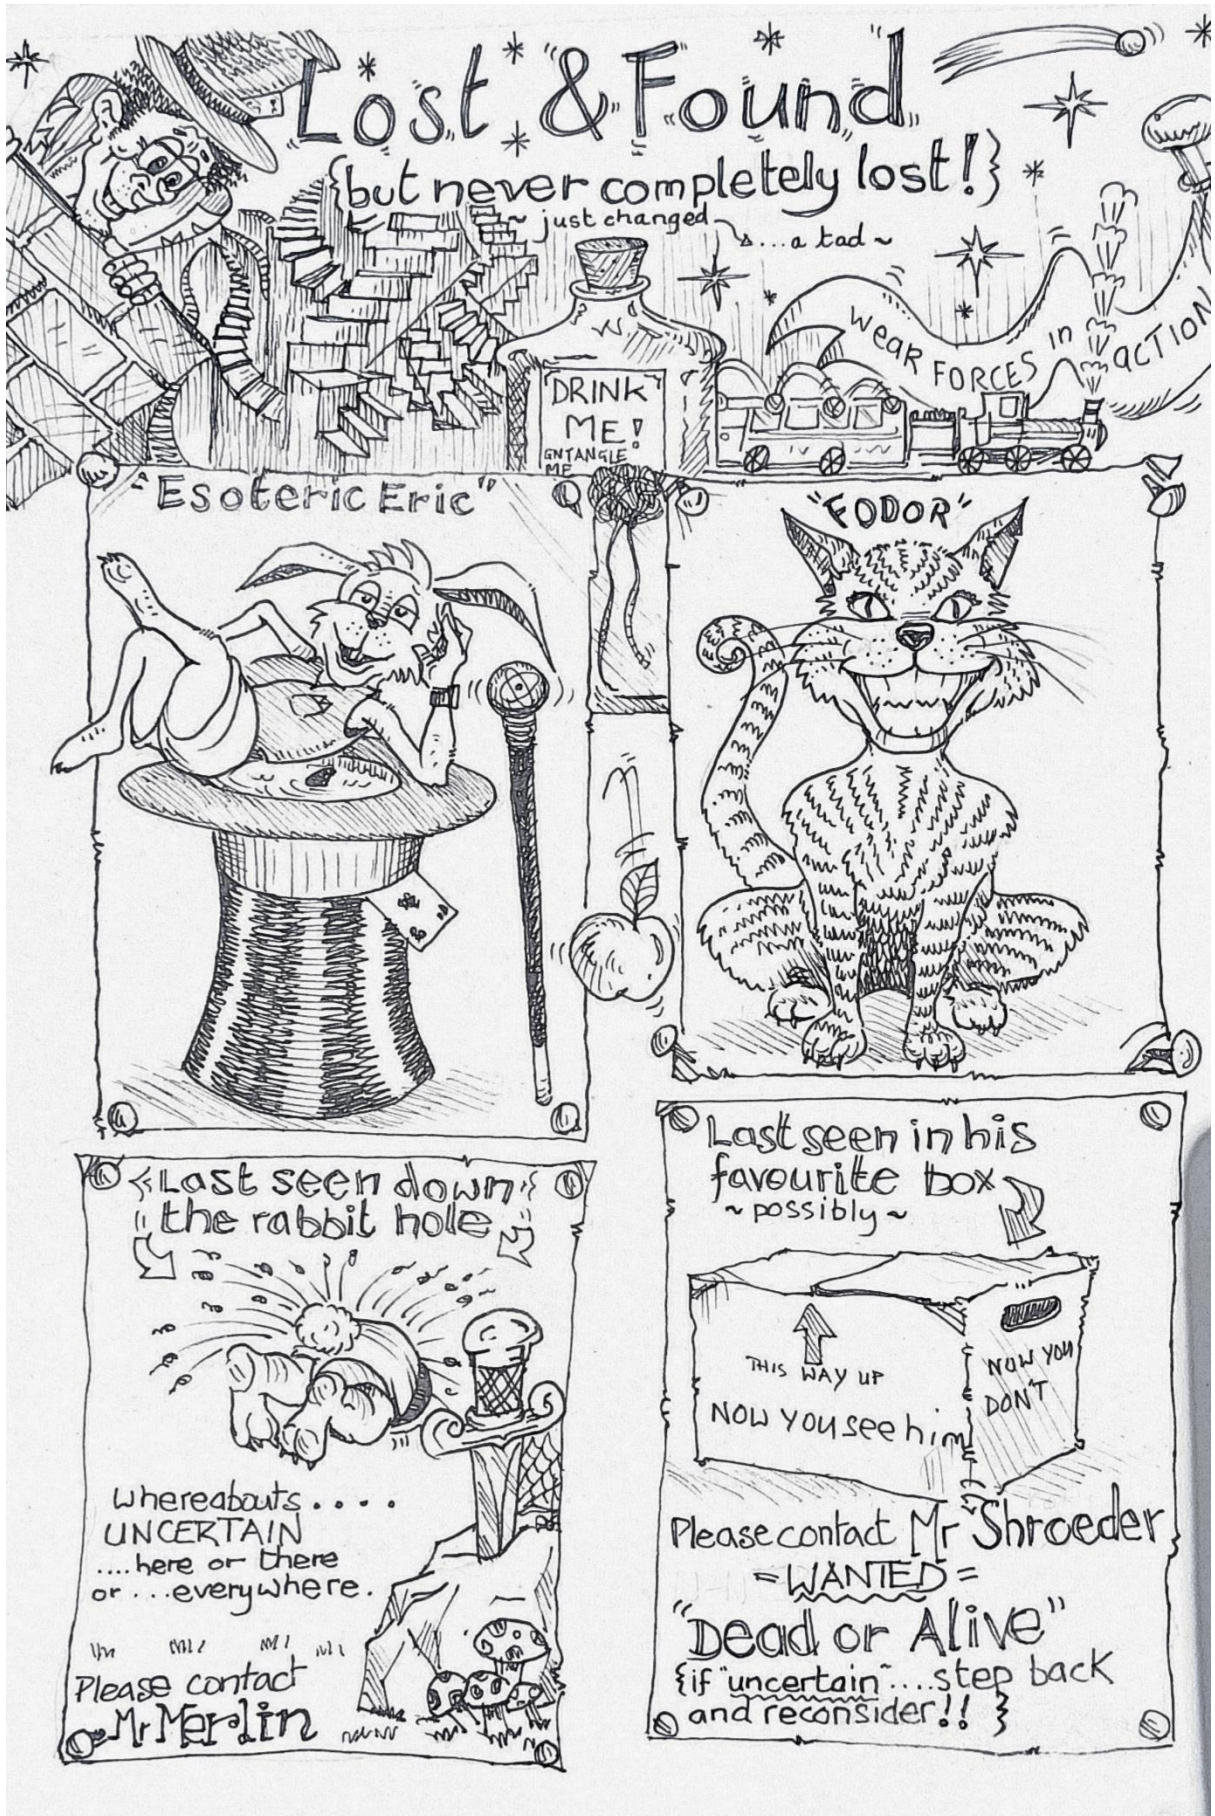 Lost & Found
{but never completely lost!}
~ just changed
....a tad ~
WEAR FORCES in ACTION
DRINK
ME!
ENTANGLE
ME
"Esoteric Eric"
"FODOR"
Last seen down
the rabbit hole
Whereabouts....
UNCERTAIN
....here or there
or ...everywhere.
Please contact
Mr Merlin
Last seen in his
favourite box
~ possibly ~
THIS WAY UP
NOW YOU see him
NOW YOU
DON'T
Please contact Mr Shroeder
= WANTED =
"Dead or Alive"
{if "uncertain"....step back
and reconsider!! }